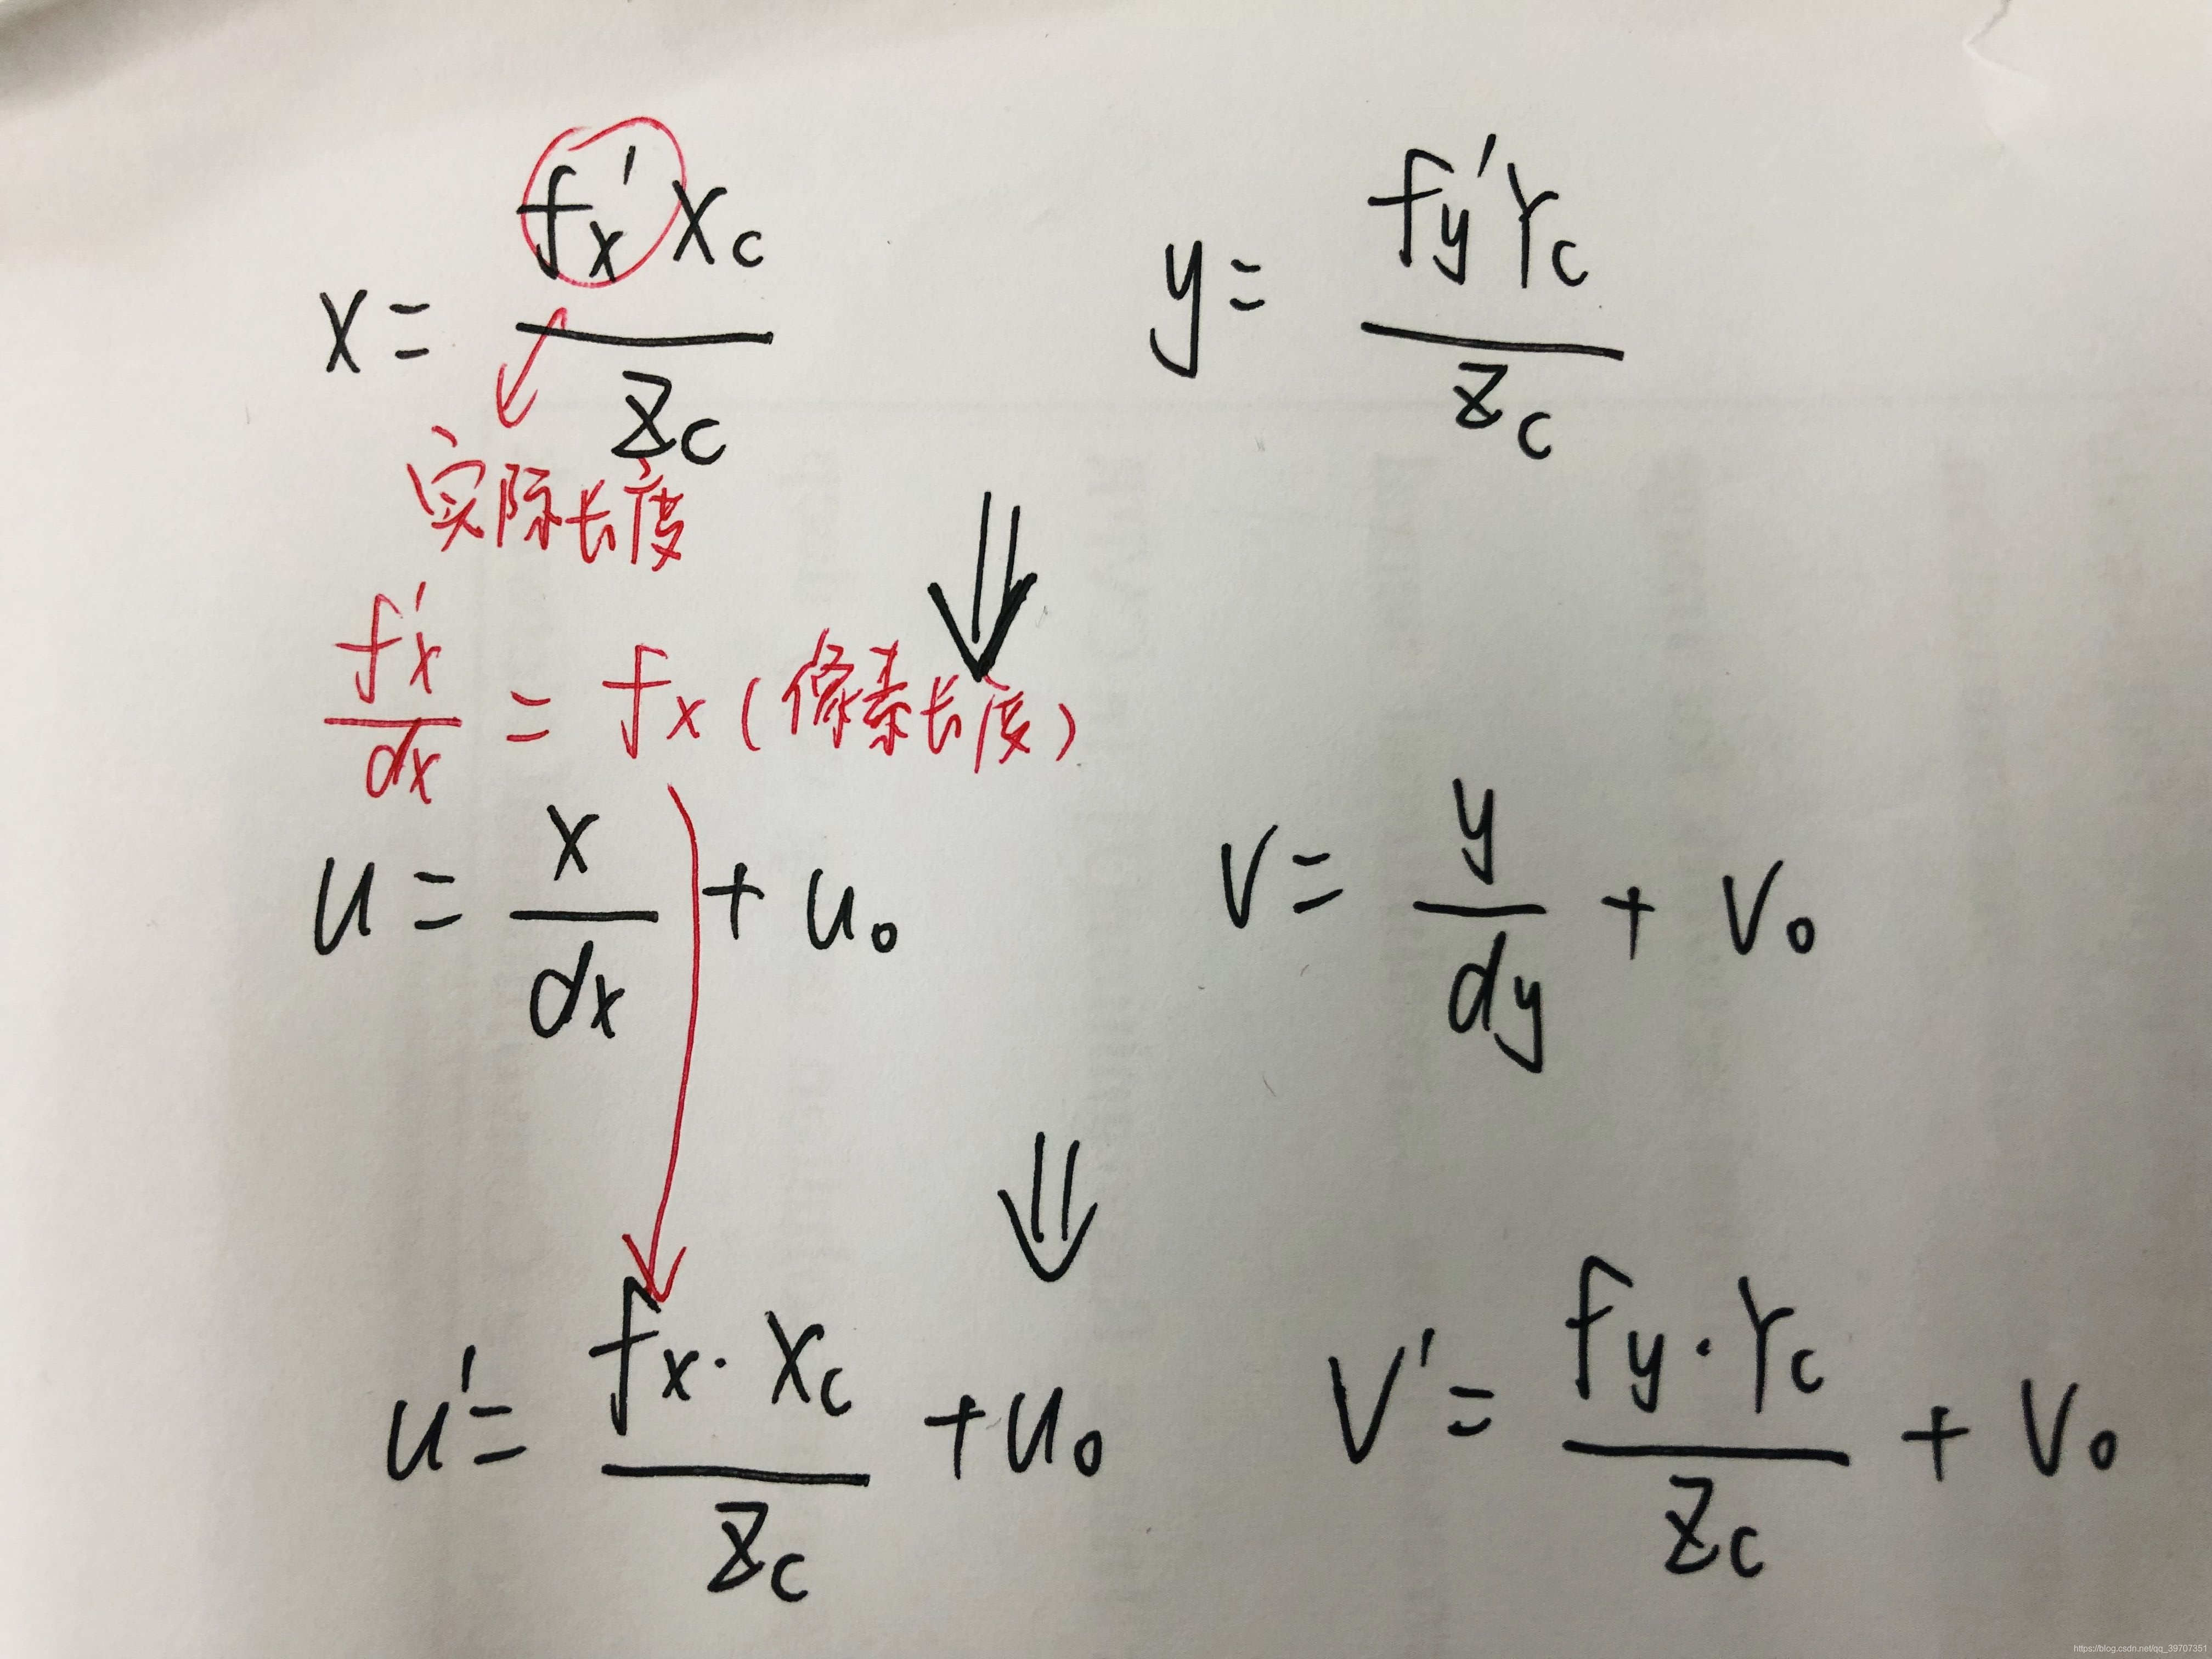 x = fx'Xc / Zc    y = fy'Yc / Zc
实际长度
f'x / dx = fx (像素长度)
⇓
u = x / dx + u₀    v = y / dy + v₀
⇓
u' = fx · Xc / Zc + u₀    v' = fy · Yc / Zc + v₀
https://blog.csdn.net/qq_39707351